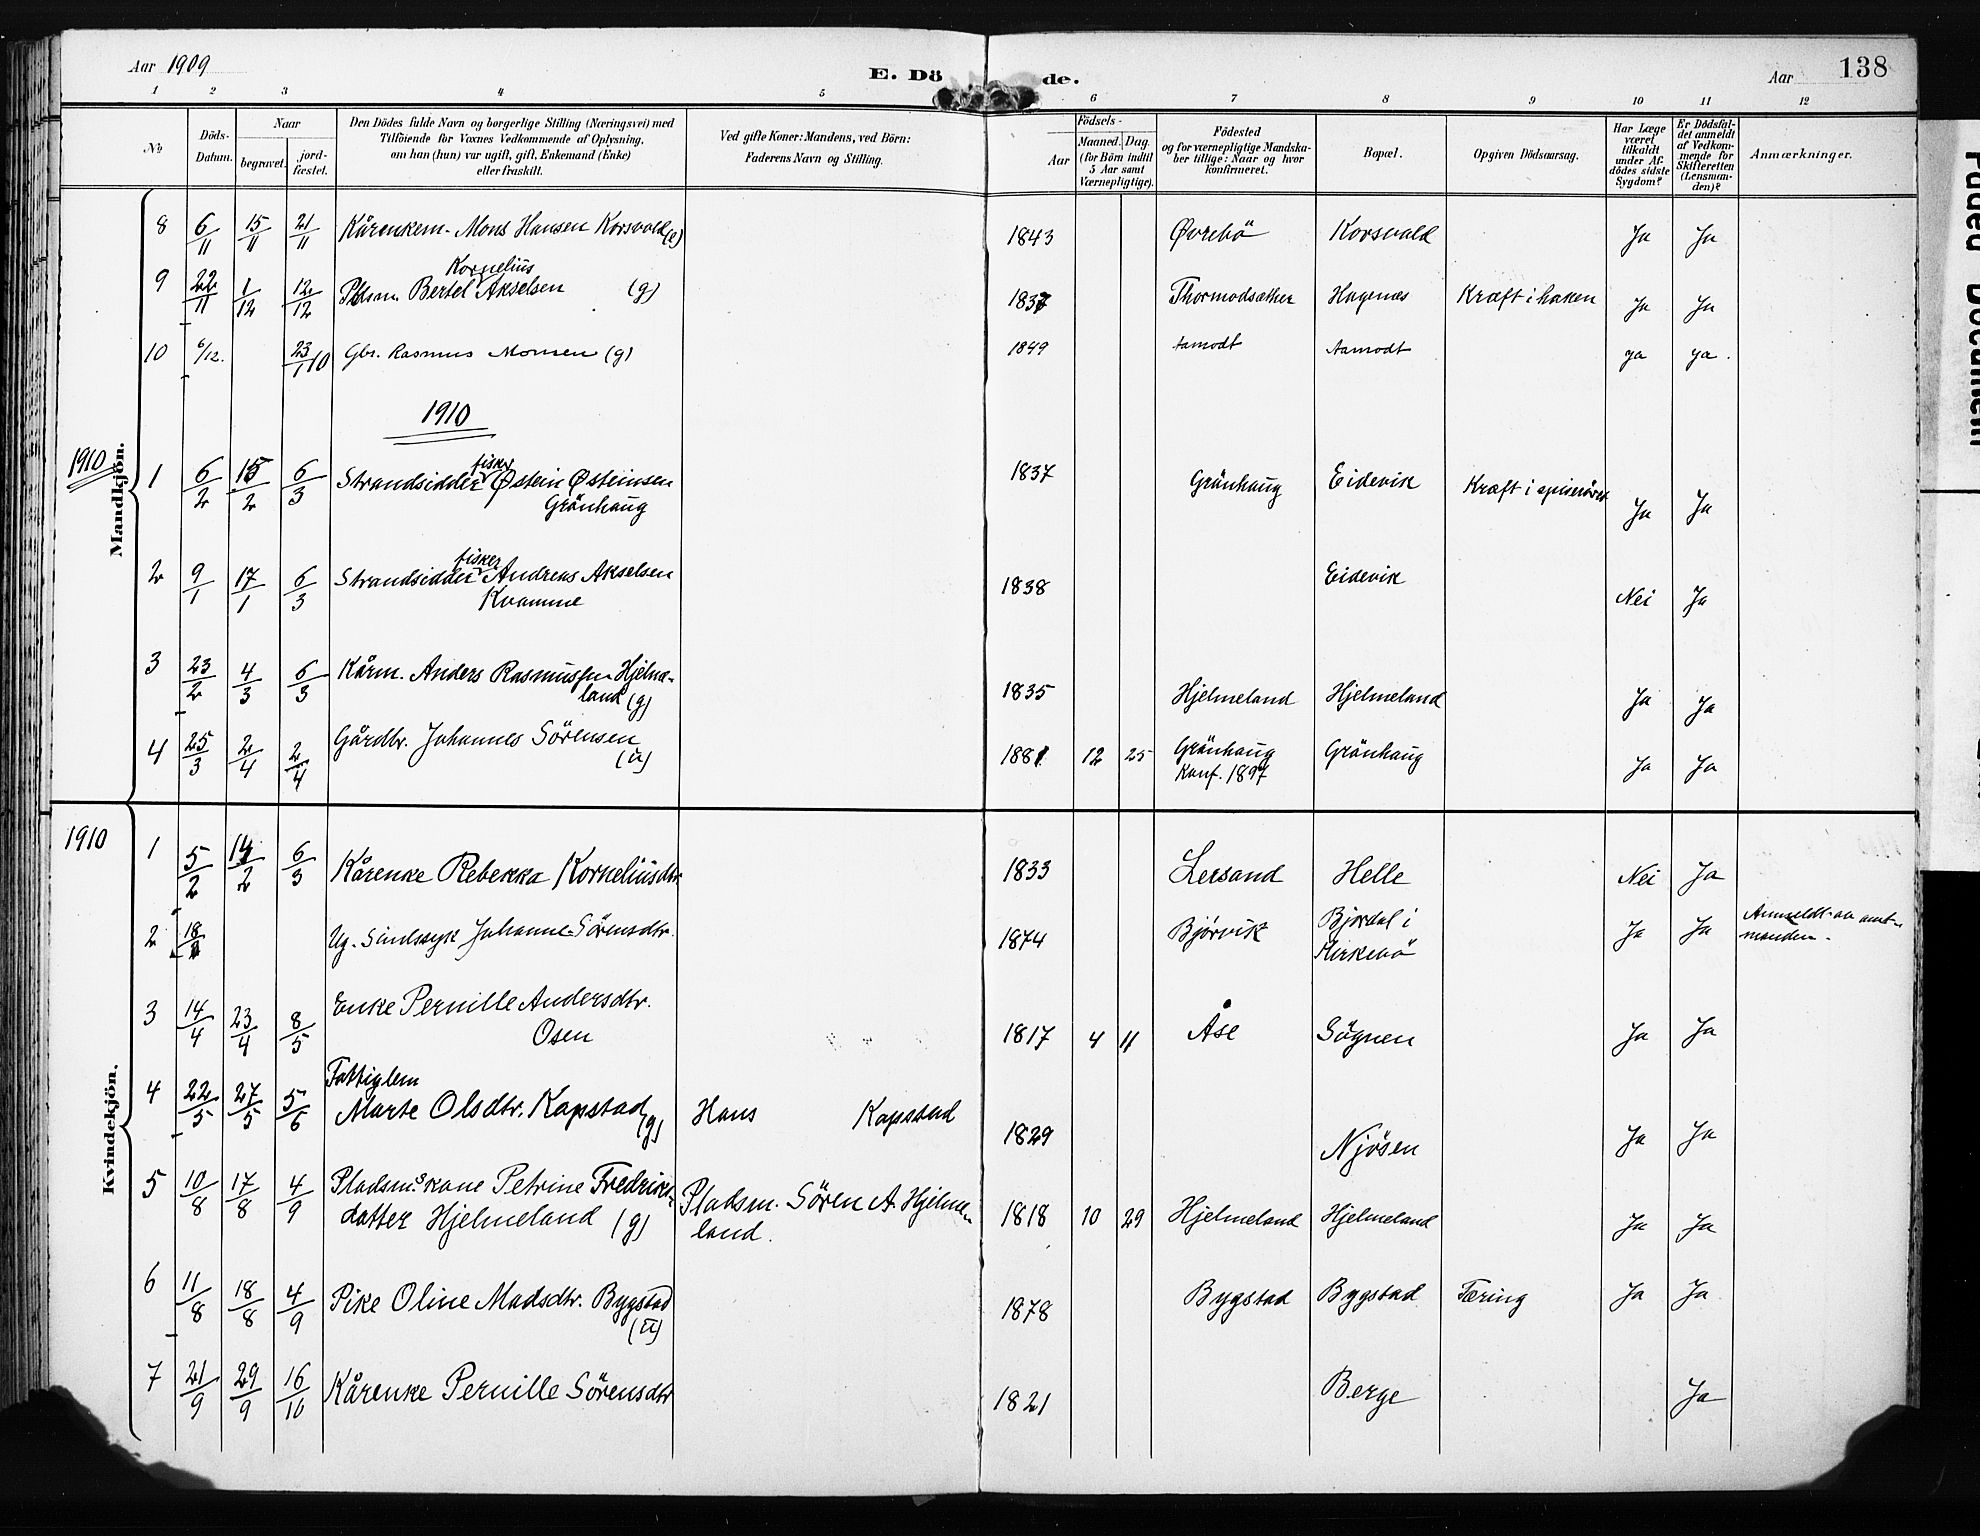 Aar 1909
E. Dö de.
Aar 138
1 2 3 4 5 6 7 8 9 10 11 12
No
Döds-Datum.
Naar
begravet.
jord-fæstet.
Den Dödes fulde Navn og borgerlige Stilling (Næringsvei) med
Tilföiende for Voxnes Vedkommende af Oplysning,
om han (hun) var ugift, gift, Enkemand (Enke)
eller fraskilt.
Ved gifte Koner: Mandens, ved Börn:
Faderens Navn og Stilling.
Födsels-
Aar
Maaned. Dag.
(for Börn indtil
5 Aar samt
Værnepligtige).
Födested
og for værnepligtige Mandska-
ber tillige: Naar og hvor
konfirmeret.
Bopæl.
Opgiven Dödsaarsag.
Har Læge
været
tilkaldt
under Af-
dödes sidste
Sygdom?
Er Dödsfal-
det anmeldt
af Vedkom-
mende for
Skifteretten
(Lensman-
den)?
Anmærkninger.
Mandkjön.
8 6/11 15/11 21/11 Kårenkem. Mons Hansen Korsvold (e) 1843 Øvrebö Korsvold Ja Ja
Kornelius
9 22/11 1/12 12/12 Plsm. Bertel Akselsen (g) 1837 Thormodsæther Hagenæs Kræft i haken Ja Ja
10 6/12. 23/1 10 Gbr. Rasmus Monsen (g) 1849 Aamodt Aamodt ja ja.
1910
1910
fisker
1 6/2 15/2 6/3 Strandsidder Østein Østeinsen 1837 Grönhaug Eidevik Kræft i spiseröret Ja Ja
Grönhaug
fisker
2 9/1 17/1 6/3 Strandsidder Andreas Akselsen 1838 Eidevik Nei Ja
Kvamme
3 23/2 4/3 6/3 Kårm. Anders Rasmussen Hjelme- 1835 Hjelmeland Hjelmeland Ja Ja
land (g)
4 25/3 2/4 2/4 Gårdbr. Johannes Sörensen 1881 12 25 Grönhaug Grönhaug Ja Ja
(u) Konf. 1897
1910
Kvindekjön.
1 5/2 14/2 6/3 Kårenke Rebekka Korneliusdtr 1833 Leersand Helle Nei Ja
2 18 Ug. Sindssyk Johanne Sörensdtr. 1874 Bjørvik Bjordal i Ja Ja Anmeldt av amt-
Kirkevö manden.
3 14/4 23/4 8/5 Enke Pernille Andersdtr. 1817 4 11 Åse Sögnen Ja Ja
Osen
Fattiglem
4 22/5 27/5 5/6 Marte Olsdtr. Kapstad (g) Hans Kapstad 1829 Njösen Ja Ja
5 10/8 17/8 4/9 Pladsm.s kone Petrine Fredriks- Pladsm. Sören A. Hjelme- 1818 10 29 Hjelmeland Hjelmeland Ja Ja
datter Hjelmeland (g) land.
6 11/8 18/8 4/9 Pike Oline Madsdtr. Bygstad 1878 Bygstad Bygstad Tæring Ja Ja
(u)
7 21/9 29/9 16/10 Kårenke Pernille Sörensdtr 1821 Berge Ja